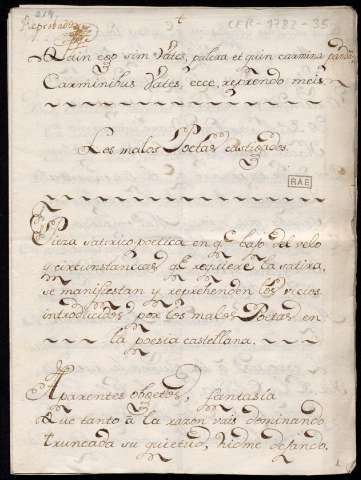 219.
Reprobada
t
CER-1782-35
Quin ego sim Vates, palera et quin carmina panda
Carminibus Vates, ecce, reprendo meis.
Los malos Poetas castigados.
RAE
Pieza satirico poetica en q.e bajo del velo
y circunstancias q.e requiere la satira,
se manifiestan y reprehenden los vicios
introducidos por los malos Poetas en
la poesia castellana.
Aparentes objetos, fantasia
Que tanto à la razon vais dominando
truncada su quietud, hidme dejando.
1